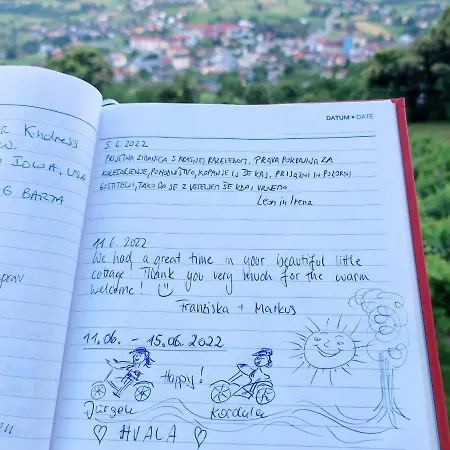 Kindness
IOWA, USA
G BARTA
DATUM • DATE
5.6.2022
PRIJETNA ZIDANICA S KRASNIM RAZGLEDOM. PRAVA POKRAJINA ZA
KOLESARJENJE, POHODNIŠTVO, KOPANJE IN ŠE KAJ. PRIJAZNI IN POZORNI
GOSTITELJI, TAKO DA SE Z VESELJEM ŠE KAJ VRNEMO
Leon in Irena
11.6.2022
We had a great time in your beautiful little
cottage! Thank you very much for the warm
welcome!
Franziska + Markus
11.06. - 15.06.2022
Happy!
Jürgen Kordula
HVALA